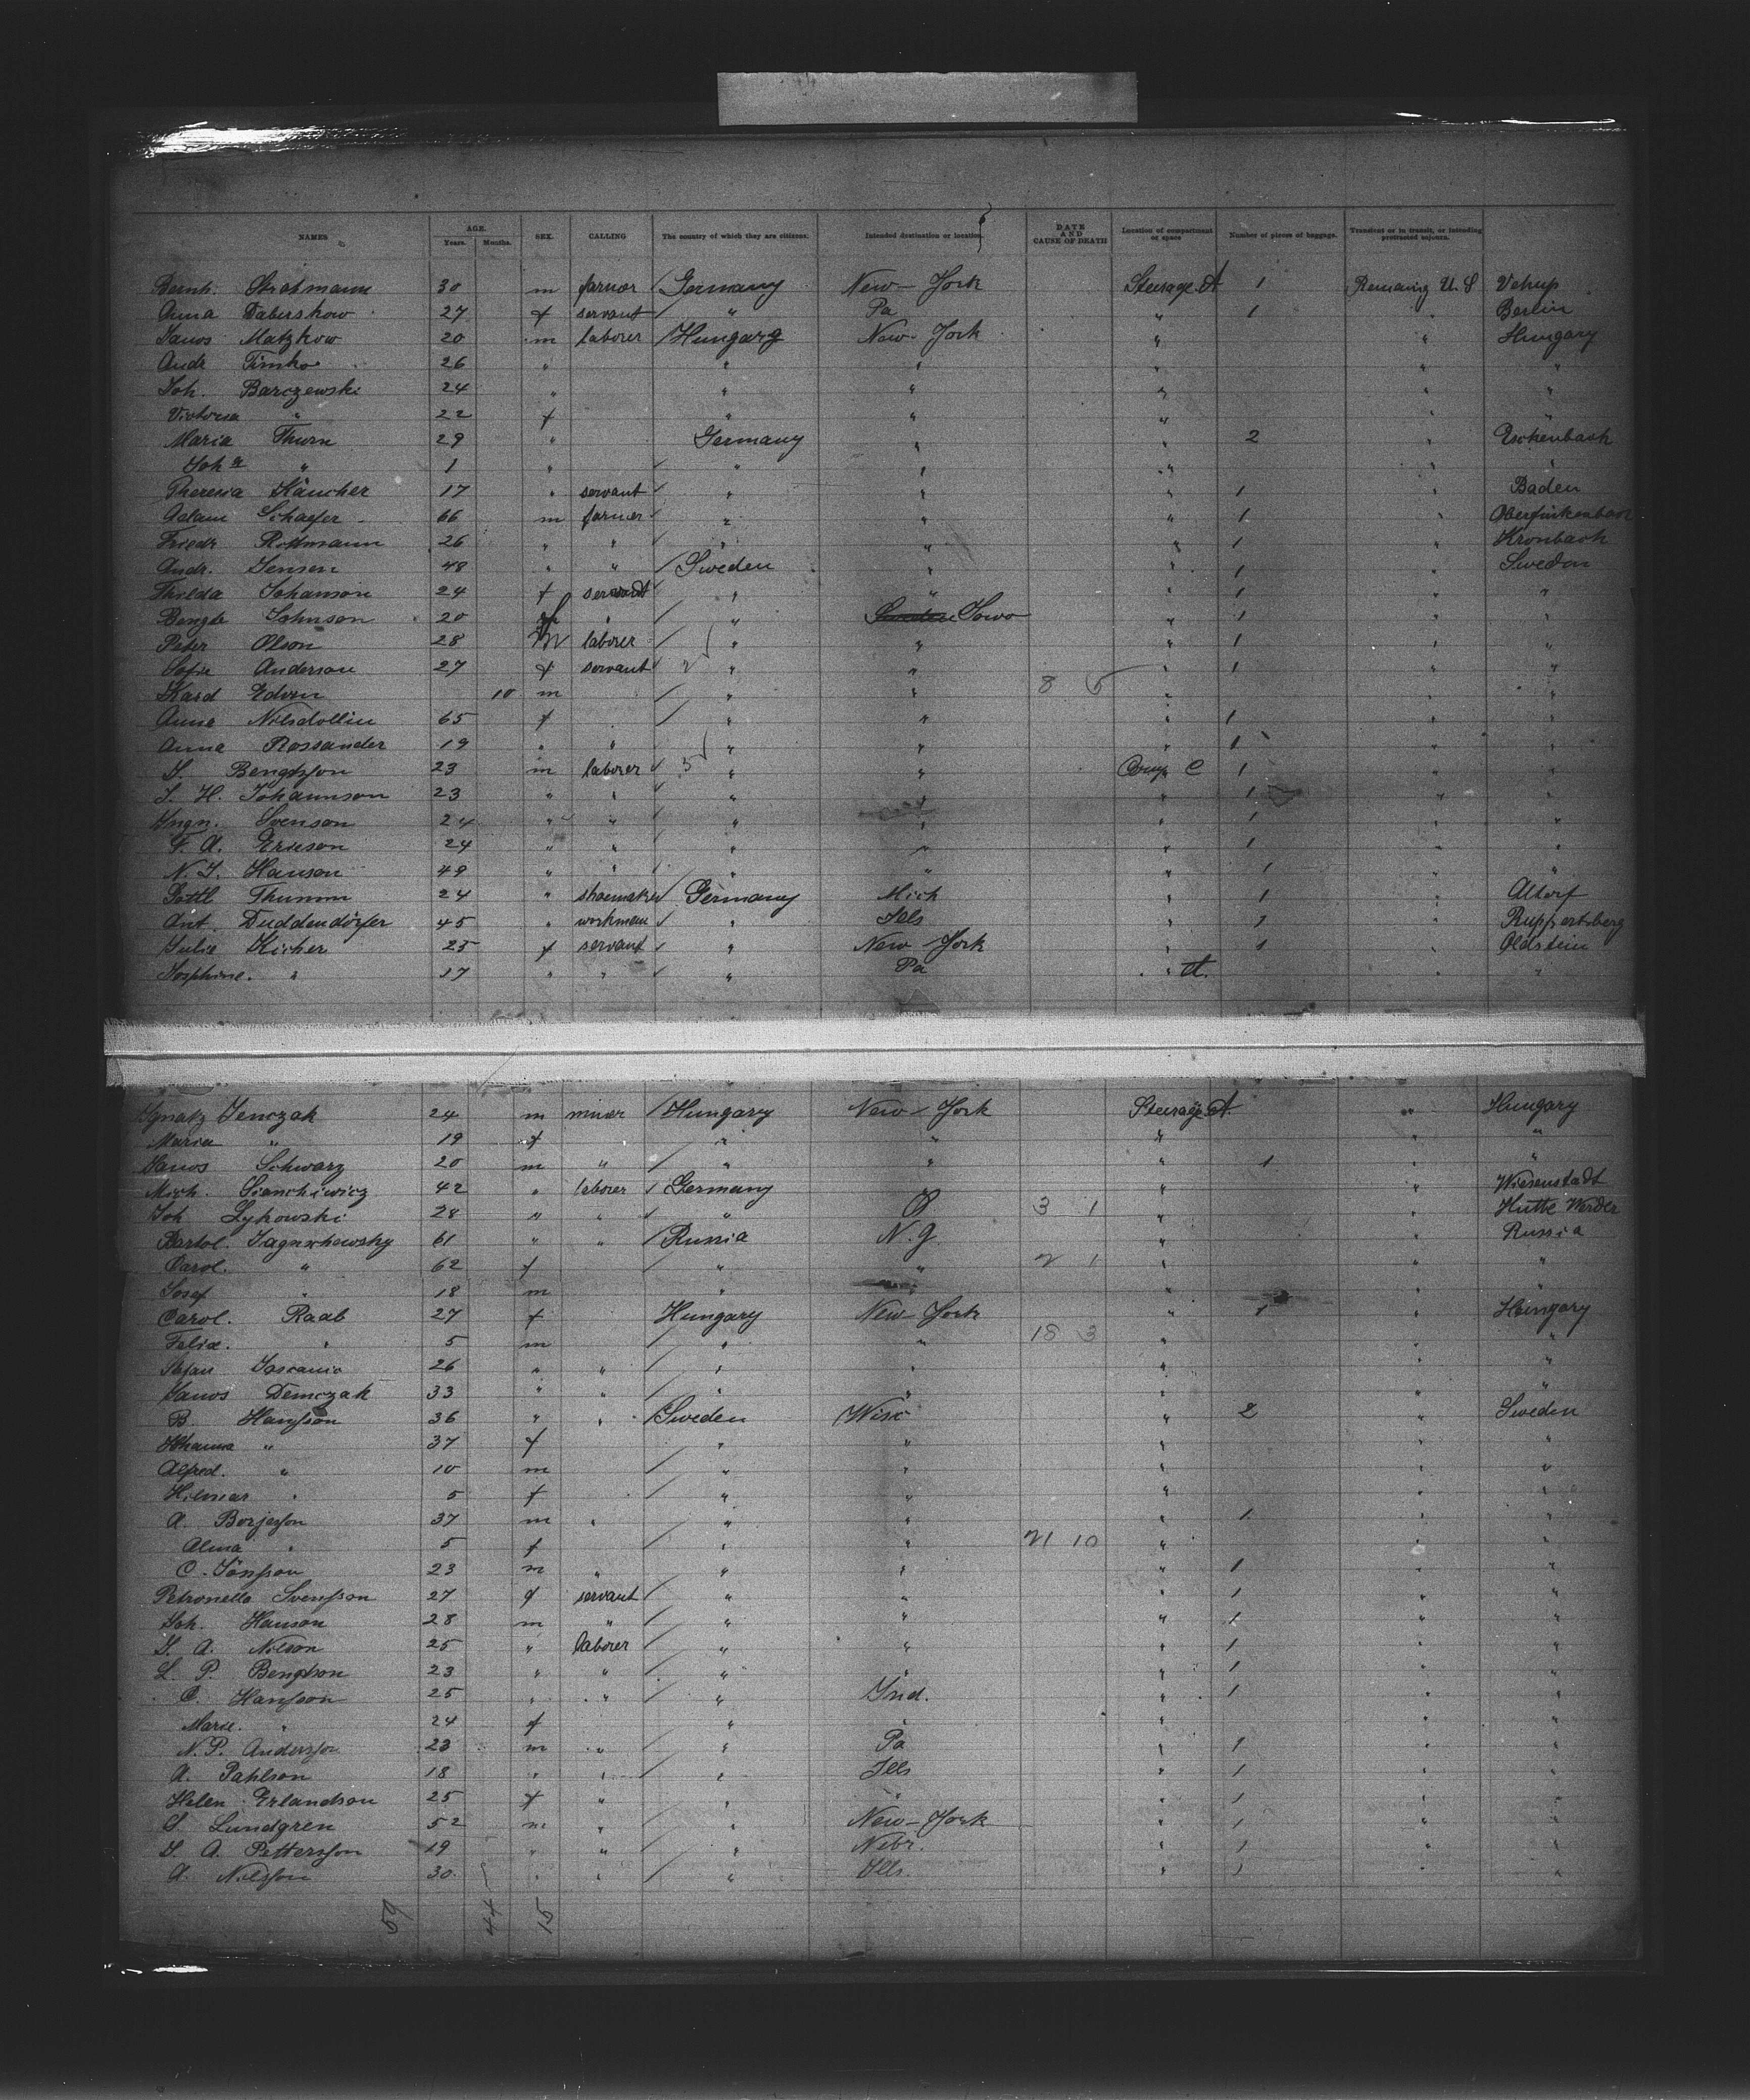 NAMES AGE. Years. Months. SEX. CALLING The country of which they are citizens. Intended destination or location. DATE AND CAUSE OF DEATH Location of compartment or space Number of pieces of baggage. Transient or in transit, or intending protracted sojourn.
Bernh. Stratmann 30 m farmer Germany New-York Steerage A 1 Remaing U.S Vehup
Anna Daberskow 27 f servant " Pa " 1 " Berlin
Janos Matzkow 20 m laborer Hungary New-York " " Hungary
Andr Timko 26 " " " " " "
Joh. Barczewski 24 " " " " " "
Victoria " 22 f " " " " "
Maria Thurn 29 " Germany " " 2 " Eschenbach
Joh " 1 " " " " " "
Theresia Käucher 17 " servant " " " 1 " Baden
Adam Schaefer 66 m farmer " " " 1 "
Friedr Rottmann 26 " " " " " 1 " Kronbach
Andr. Jensen 48 " " Sweden " " 1 " Sweden
Thilda Johanson 24 f servant " " " 1 " "
Bengta Johnson 20 f " " Iowa " 1 " "
Peter Olson 28 m laborer " " " 1 " "
Sofie Anderson 27 f servant 2 " " " 1 " "
Kard Edvin 10 m " " 8 5 " " "
Anna Nilsdollin 65 f " " " 1 " "
Anna Rossander 19 " " " " " 1 " "
J. Bengtsson 23 m laborer 5 " " Comp C 1 " "
J. H. Johannson 23 " " " " " 1 " "
Yngn. Svenson 24 " " " " " 1 " "
F. A. Ericson 24 " " " " " 1 " "
N. J. Hanson 49 " " " " " 1 " "
Gottl Thumm 24 " shoemaker Germany Mich " 1 " Altorf
Ant. Duddendörfer 45 " workman " Ills " 1 " Ruppertsberg
Julie Kicher 25 f servant " New-York " 1 " Oldstein
Josphine. " 17 " " " Pa " A. " "
Ignatz Jenczak 24 m miner Hungary New-York Steerage A " Hungary
Maria " 19 f " " " " "
Janos Schwarz 20 m " " " " 1 " "
Mich. Sianchiewicz 42 " laborer Germany " " " Wiesenstadt
Joh Lykowski 28 " " " O 3 1 " " Hutte Werder
Bartol. Jagnschewsky 61 " " Russia N.J. " " Russia
Carol. " 62 f " " 2 1 " " "
Josef " 18 m " " " "
Carol. Raab 27 f Hungary New York " 1 " Hungary
Felix. " 5 m " " 18 3 " " "
Stefan Jascanio 26 " " " " " " "
Janos Demczak 33 " " " " " " "
B. Hansson 36 " " Sweden Wisc " 2 " Sweden
Johanna " 37 f " " " " "
Alfred. " 10 m " " " " "
Hilmar " 5 f " " " " "
A. Borjesson 37 m " " " " 1 " "
Alma " 5 f " " 21 10 " " "
C. Jönsson 23 m " " " " 1 " "
Petronella Svensson 27 f servant " " " 1 " "
Joh. Hanson 28 m " " " " 1 " "
J. A. Nilson 25 " laborer " " " 1 " "
L. P. Bengtson 23 " " " " " 1 " "
C. Hansson 25 " " " Ind. " 1 " "
Marie. " 24 f " " " " "
N. P. Andersson 23 m " " Pa " 1 " "
A. Pahlson 18 " " " Ills " 1 " "
Helen Erlandson 25 f " " " " 1 " "
S. Lundgren 52 m " " New-York " 1 " "
J. A. Pettersson 19 " " " Nebr. " 1 " "
A. Nilsson 30 " " " Ills. " 1 " "
59 44 15